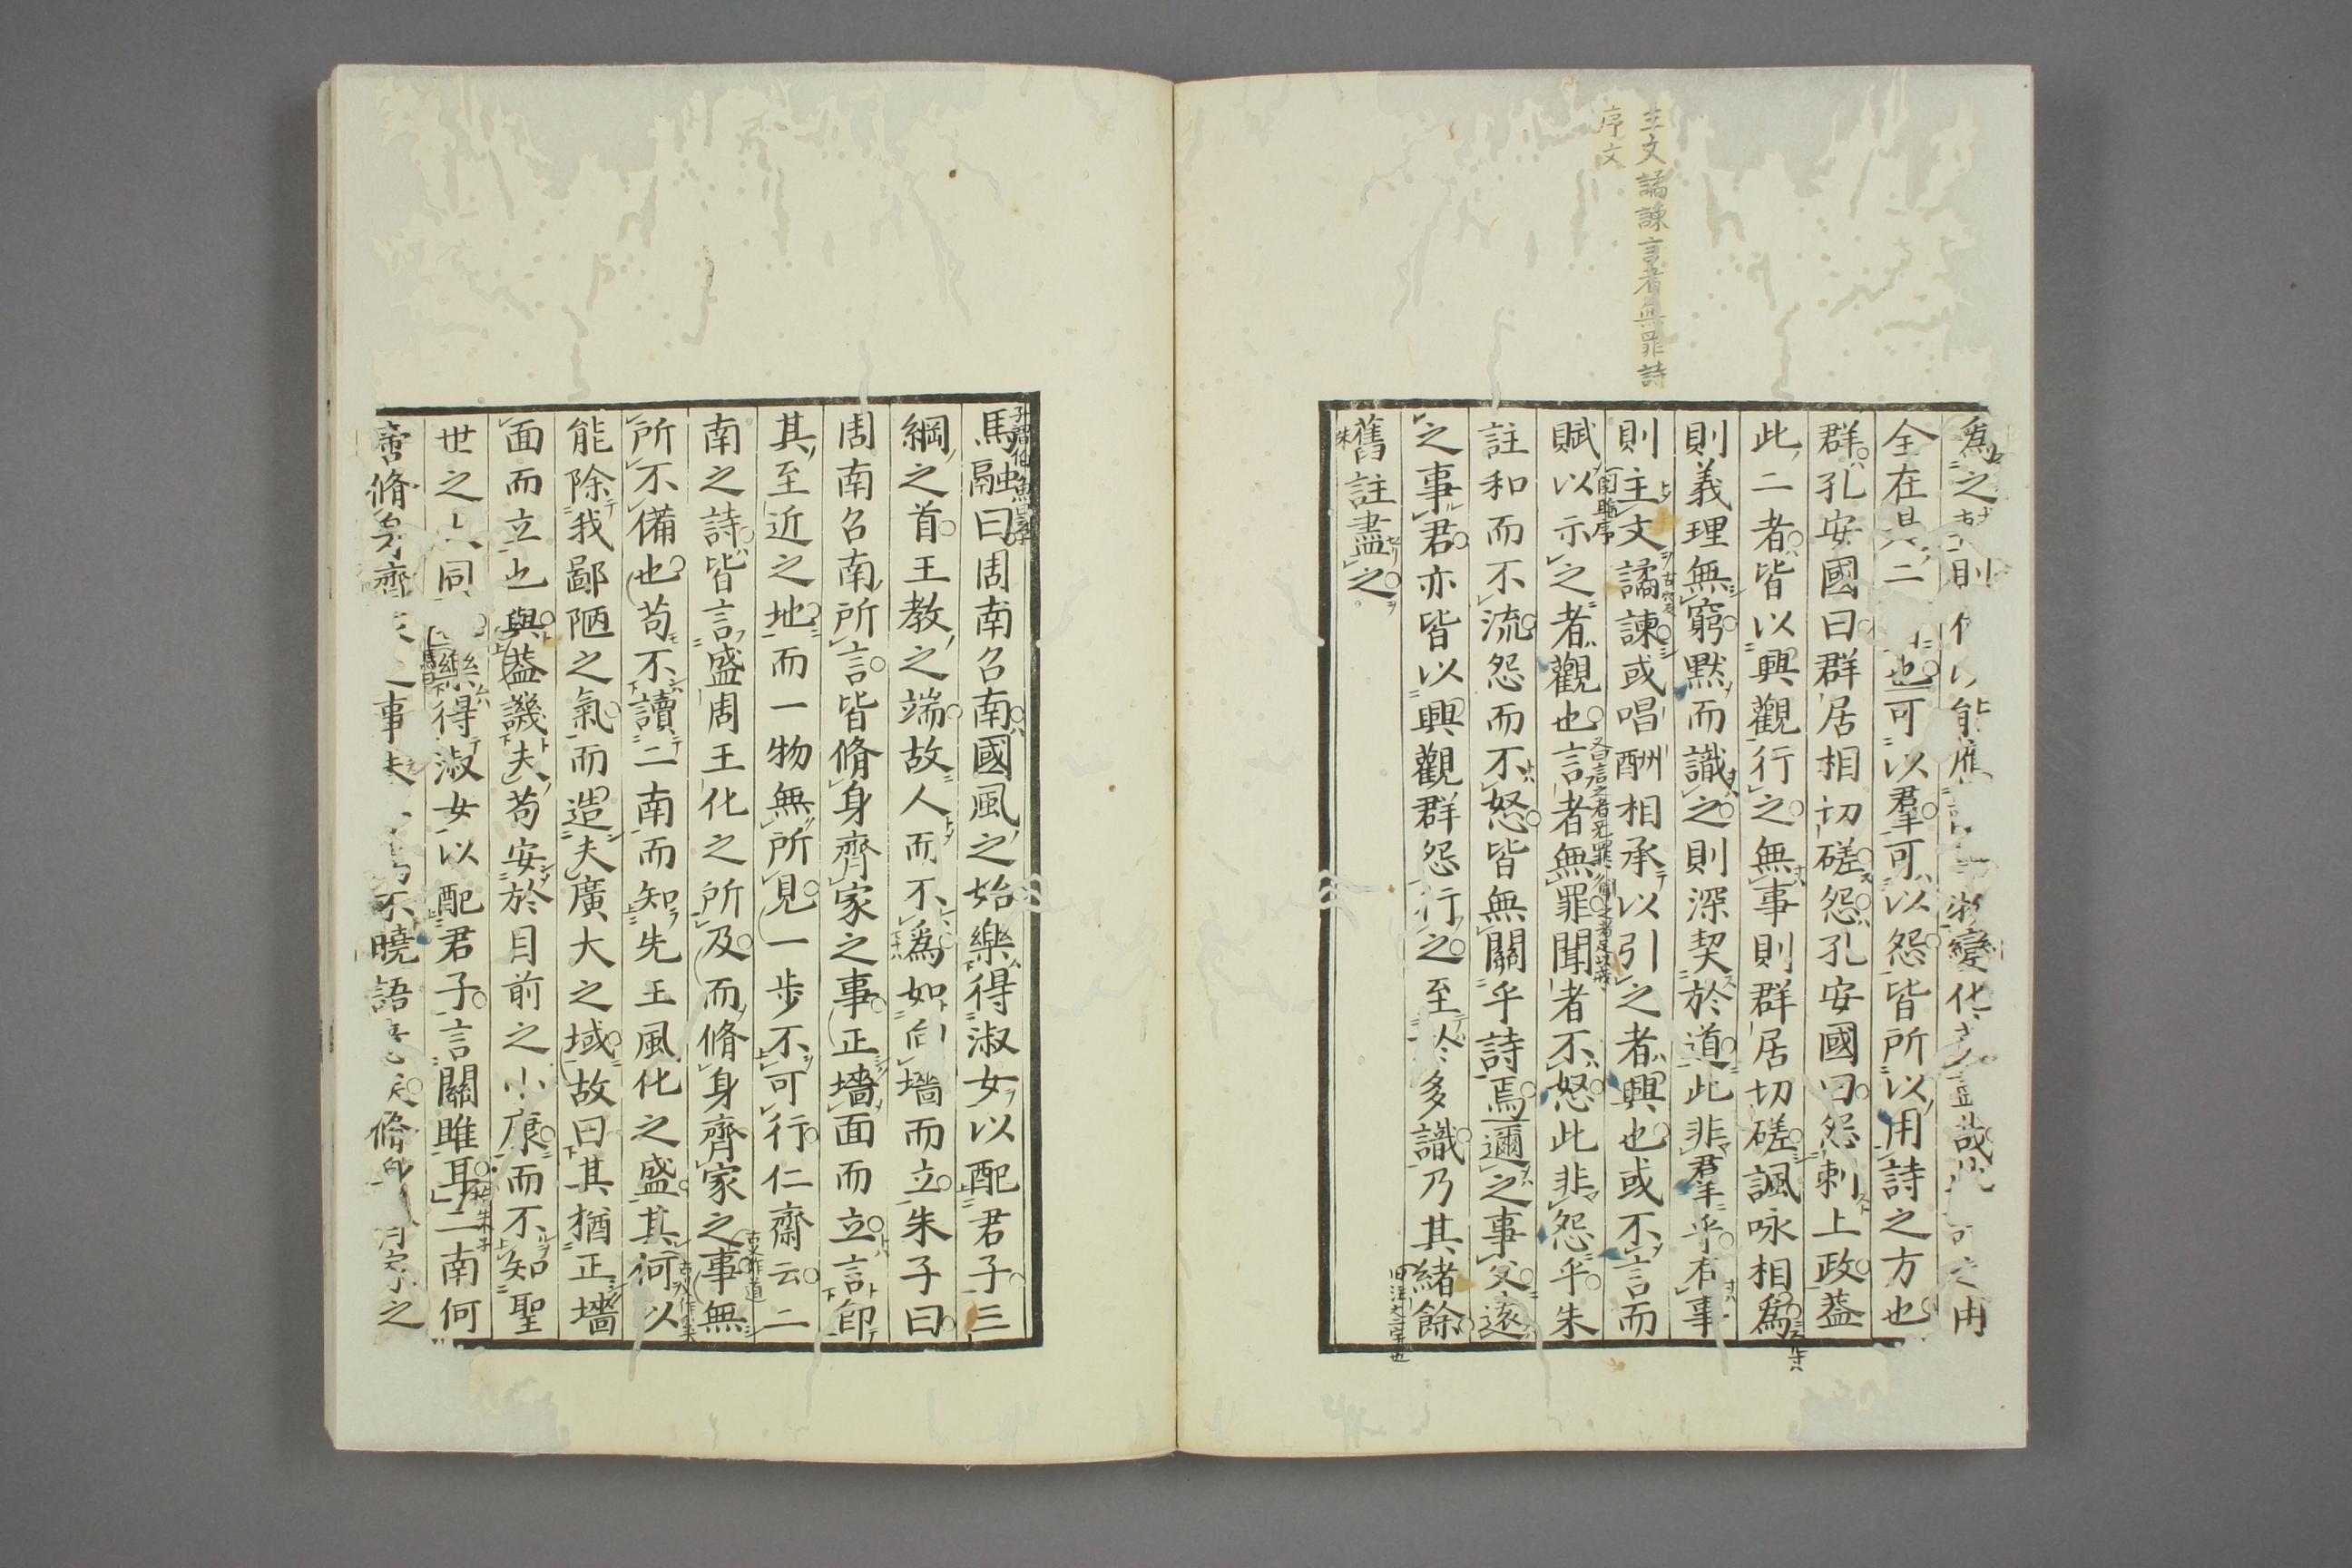 主文譎諫言者無罪詩
序文
爲之 則 能應 變化 盡哉 之用
全在是二 也可以羣可以怨皆所以用詩之方也
群孔安國曰群居相切磋怨孔安國曰怨刺上政蓋
此二者皆以興觀行之無事則群居切磋諷咏相爲
則義理無窮默而識之則深契於道此非羣乎有事
則主文譎諫或唱酬相承以引之者興也或不言而
賦以示之者觀也言者無罪聞者不怒此非怨乎朱
註和而不流怨而不怒皆無關乎詩焉邇之事父遠
之事君亦皆以興觀群怨行之至於多識乃其緒餘
舊註盡之
馬融曰周南召南國風之始樂得淑女以配君子三
綱之首王教之端故人而不爲如向墻而立朱子曰
周南召南所言皆脩身齊家之事正墻面而立言卽
其至近之地而一物無所見一步不可行仁齋云二
南之詩皆言盛周王化之所及而脩身齊家之事無
所不備也苟不讀二南而知先王風化之盛其何以
能除我鄙陋之氣而造夫廣大之域故曰其猶正墻
面而立也與蓋譏夫苟安於目前之小康而不知聖
世之 同 樂得淑女以配君子言關雎耳二南何
嘗脩身齊 之事 不曉語 脩 之